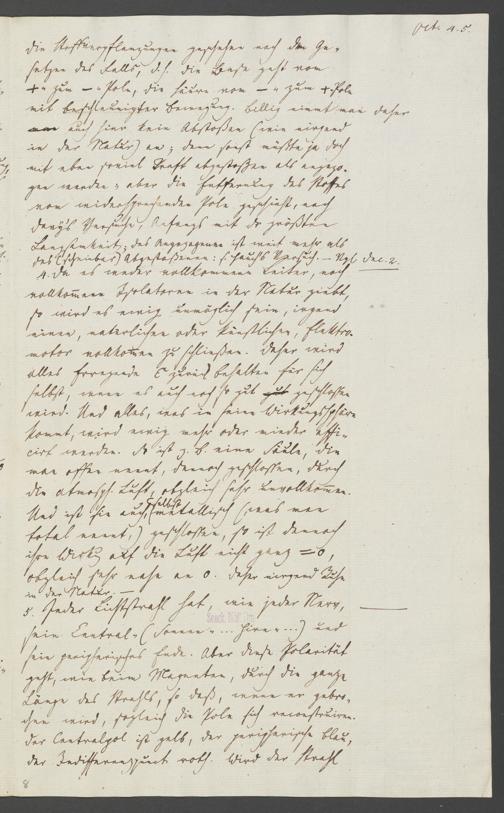 Oct. 4.5.
die Stoffverpflanzungen geschehen nach den Ge-
setzen des Falls, d.h. die Base geht vom
+ = zum - = Pole, die Säure vom - = zum + Pole
mit beschleunigter Bewegung. Billig nimmt man daher
auch hier kein Abstoßen (wie nirgend
in der Natur) an; denn sonst müßte ja doch
mit eben soviel Kraft abgestoßen als angezo-
gen werden; aber die Entfernung des Stoffes
vom widersprechenden Pole geschieht, nach
Davy's Versuche, Anfangs mit der größten
Langsamkeit; des Angezogenen ist weit mehr als
des (scheinbar) Abgestoßenen: Versuch. - Vgl. Dec. 2.
4. Da es weder vollkommene Leiter, noch
vollkommene Isolatoren in der Natur giebt,
so wird es ewig unmöglich sein, irgend
einen, natürlichen oder künstlichen, Elektro-
motor vollkommen zu schließen. Daher wird
alles Erregende E zurück behalten für sich
selbst, wenn es auch noch so gut geschlossen
wird. Und alles, was in seine Wirkungssphäre
kommt, wird ewig mehr oder minder affi-
cirt werden. So ist z.B. eine Säule, die
man offen nennt, dennoch geschlossen, durch
die atmosph. Luft, obgleich sehr unvollkommen.
Und ist sie auch selbst metallisch (was man
total nennt,) geschlossen, so ist dennoch
ihre Wirkg auf die Luft nicht ganz = 0,
obgleich sehr nahe an 0. Daher nirgend Ruhe
in der Natur. -
5. Jeder Lichtstrahl hat, wie jeder Nerv,
sein Central- (Sonnen- ... Hirn- ...) und
sein peripherisches Ende. Aber diese Polarität
geht, wie beim Magneten, durch die ganze
Länge des Strahls, so daß, wenn er gebro-
chen wird, sogleich die Pole sich reconstruiren.
Der Centralpol ist gelb, der peripherische blau,
der Indifferenzpunct roth. Wird der Strahl
8